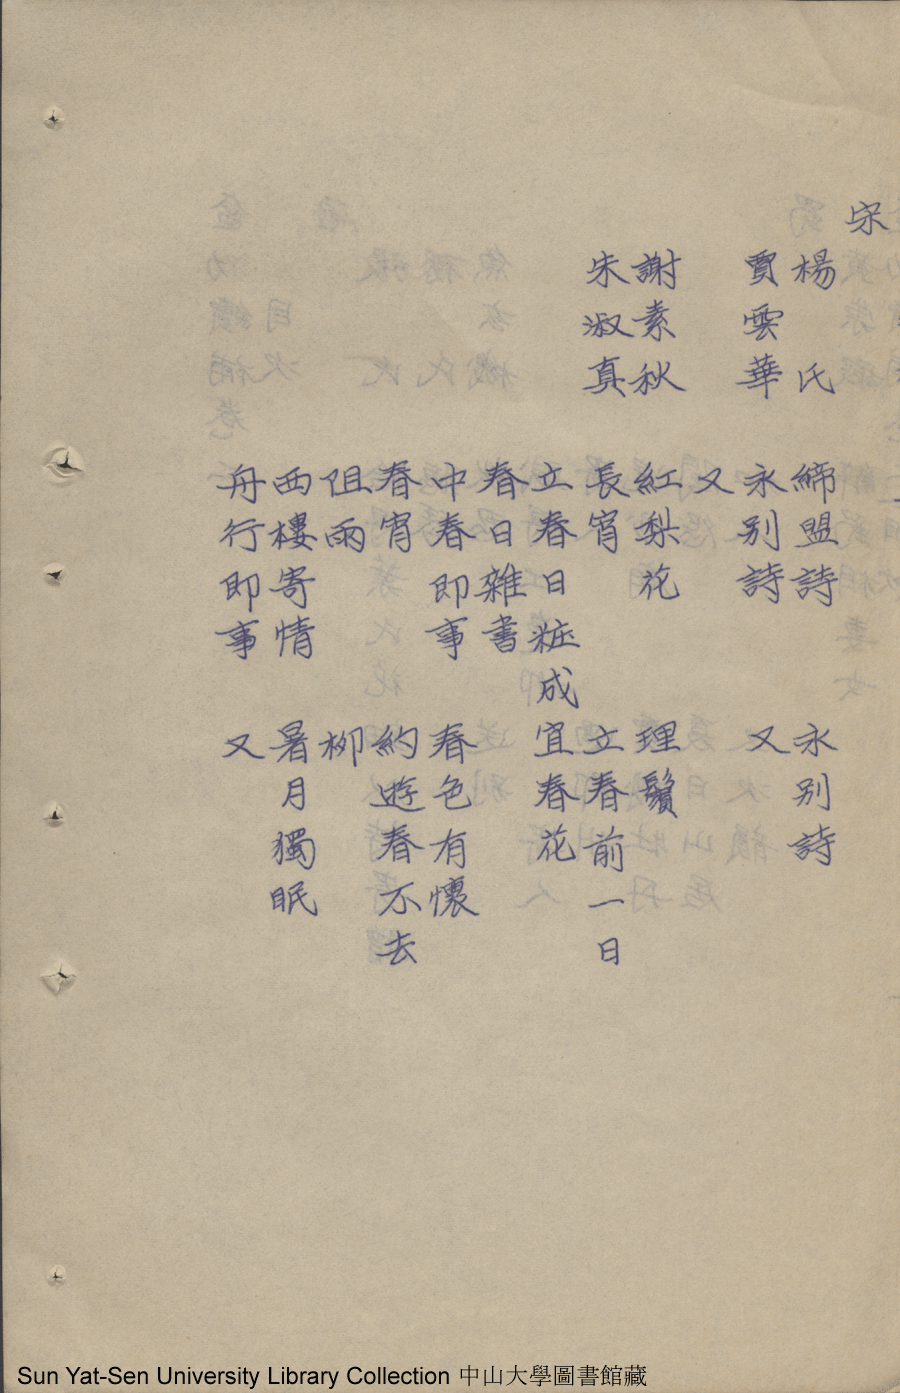 宋
楊 氏 締盟詩 永别詩
賈雲華 永别詩 又
又
謝素秋 紅梨花 理鬢
朱淑真 長宵 立春前一日
立春日粧成 宜春花
春日雜書
中春即事 春色有懷
春宵 約遊春不去
阻雨 柳
西樓寄情 暑月獨眠
舟行即事 又
Sun Yat-Sen University Library Collection 中山大學圖書館藏